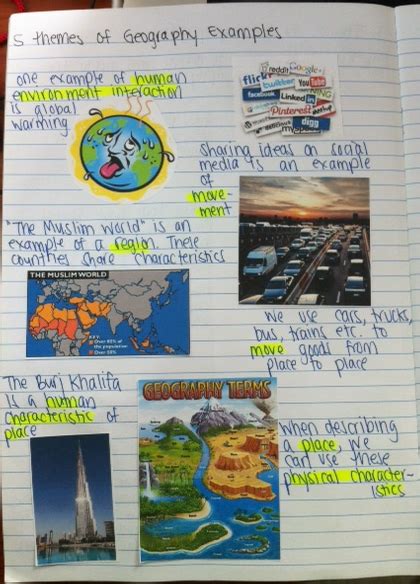 5 themes of Geography Examples
one example of human
environment interaction
is global
warming
reddit Google+
flickr twitter YouTube
facebook LinkedIn
Pinterest
delicious digg
Sharing ideas on social
media is an example
of
move-
ment
"The Muslim World" is an
example of a region. These
countries share characteristics
THE MUSLIM WORLD
Over 85% of
the population
Over 50%
We use cars, trucks,
bus, trains etc. to
move goods from
place to place
The Burj Khalifa
is a human
characteristic of
place
GEOGRAPHY TERMS
When describing
a place, we
can use these
physical character-
istics